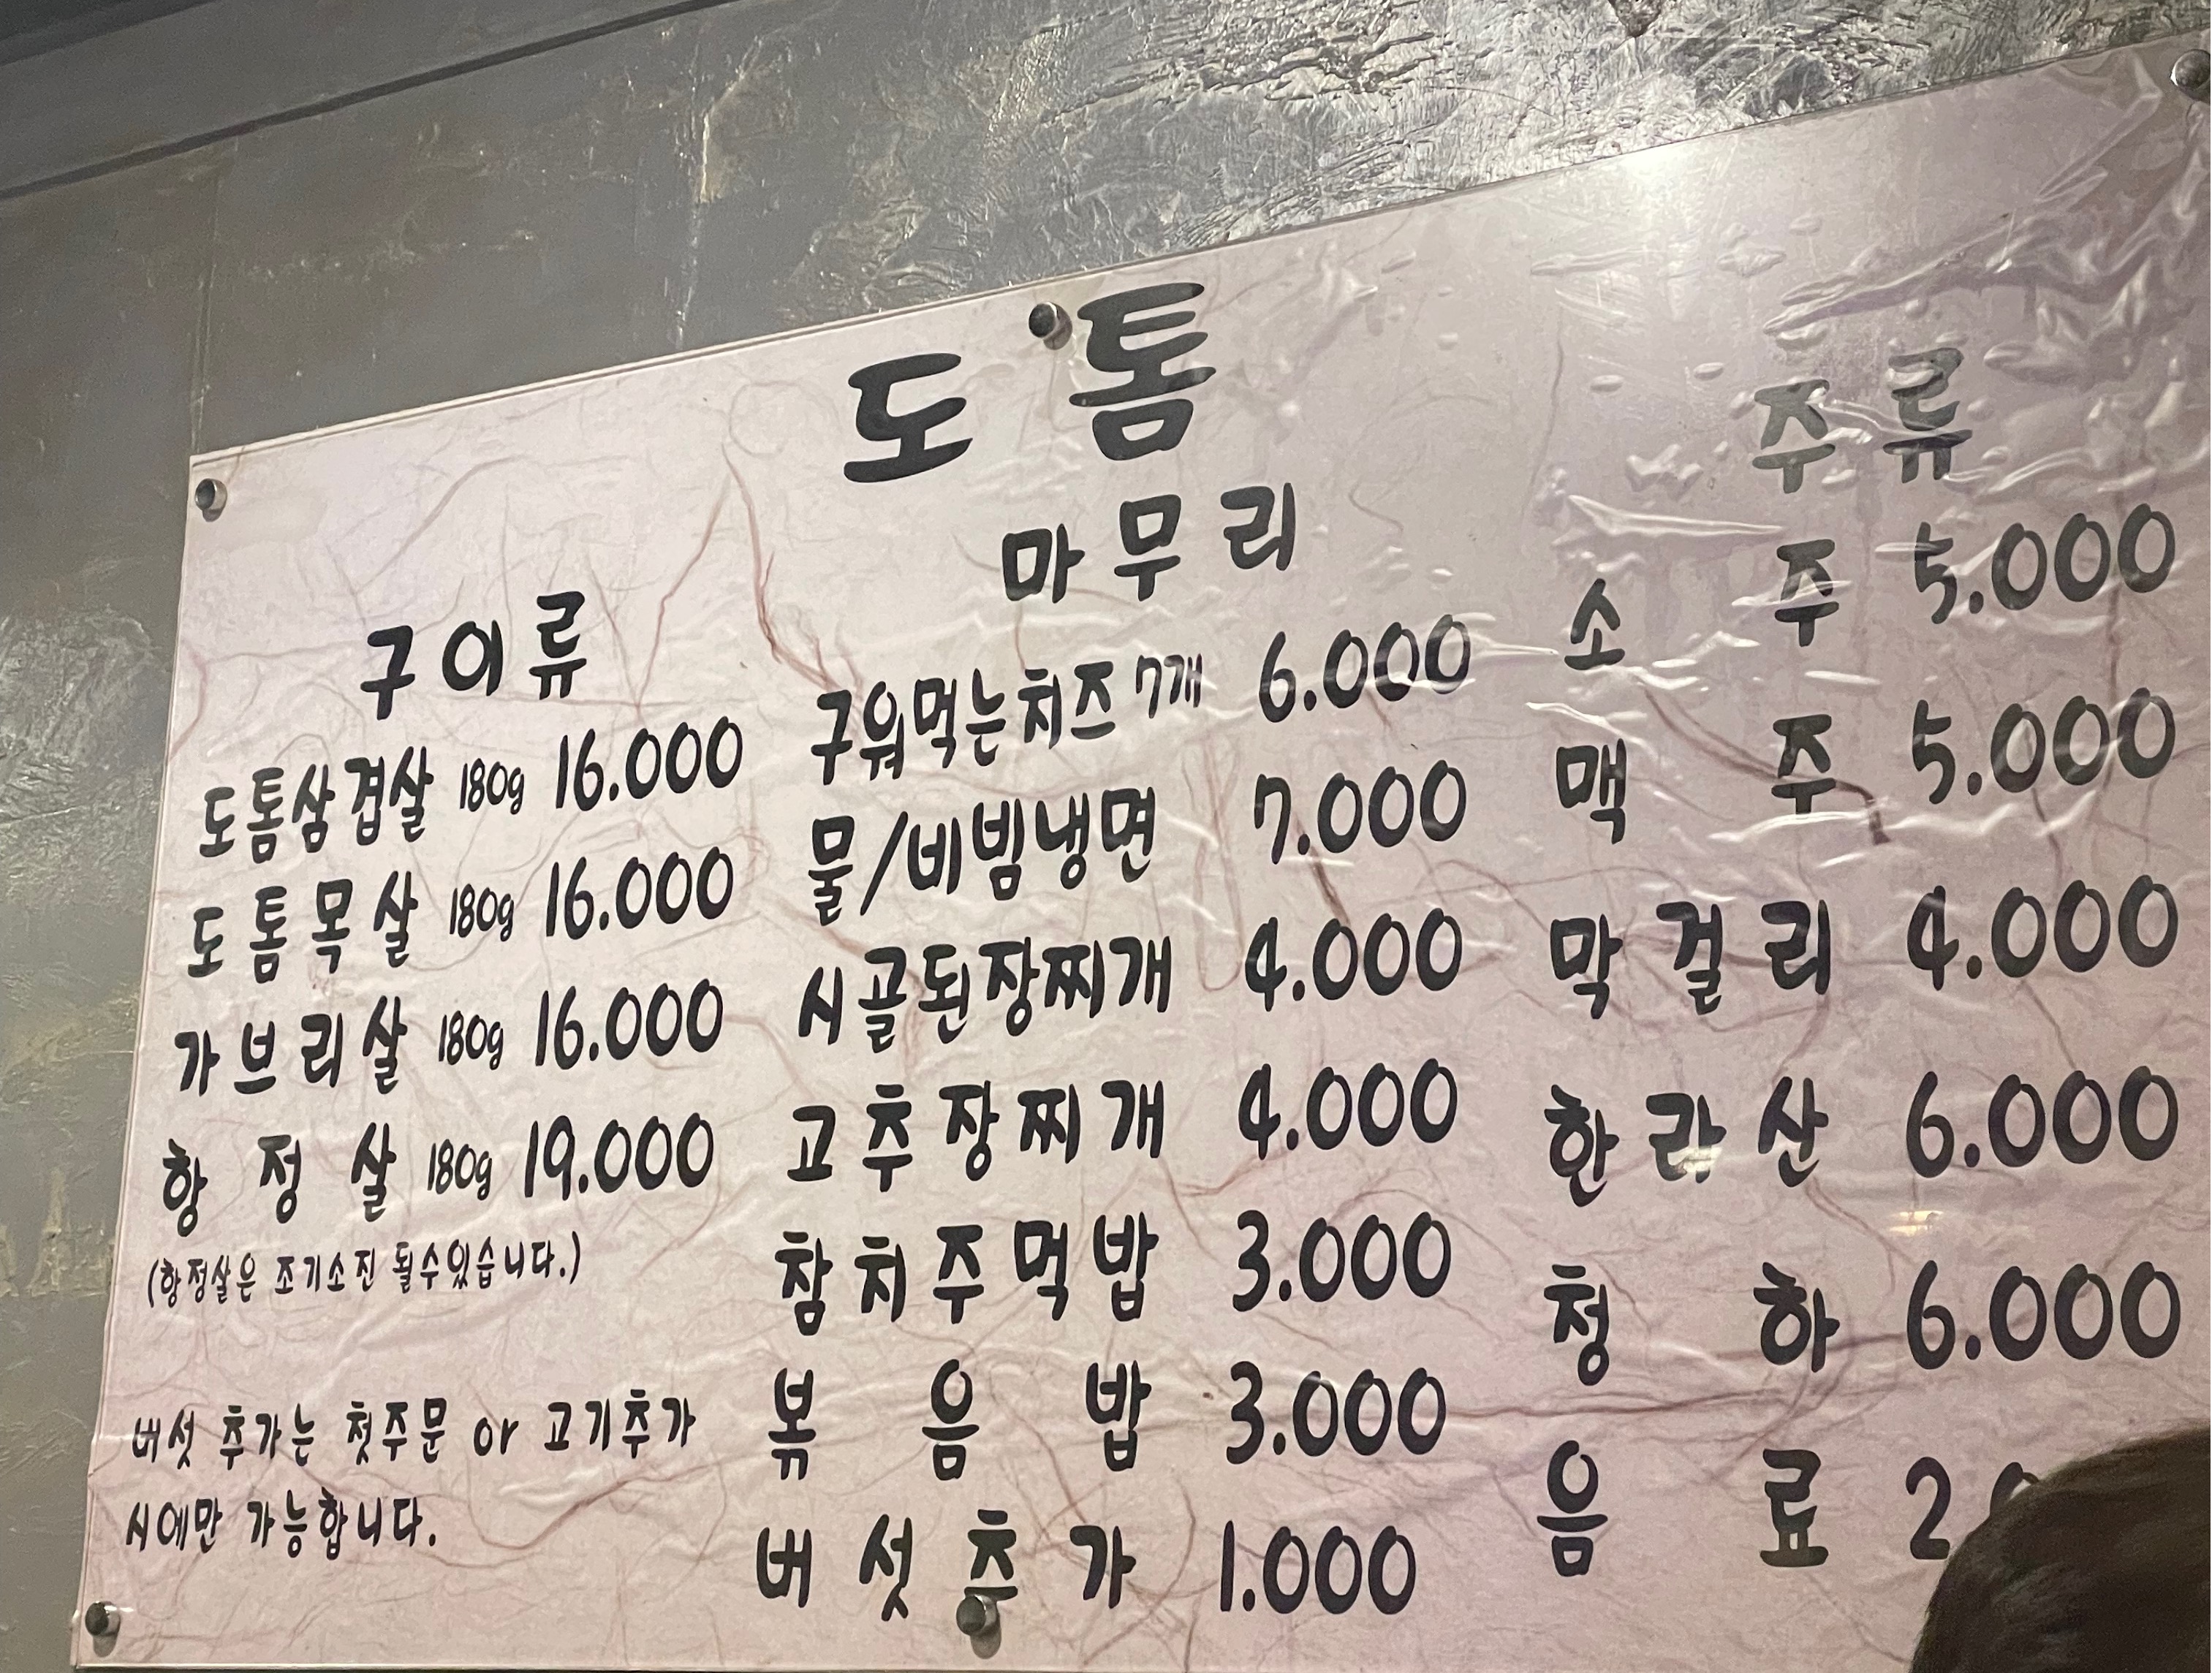 도톰
구이류
도톰삼겹살 180g 16.000
도톰목살 180g 16.000
가브리살 180g 16.000
항정살 180g 19.000
(항정살은 조기소진 될수있습니다.)
버섯 추가는 첫주문 or 고기추가
시에만 가능합니다.
마무리
구워먹는치즈 7개 6.000
물/비빔냉면 7.000
시골된장찌개 4.000
고추장찌개 4.000
참치주먹밥 3.000
볶음밥 3.000
버섯추가 1.000
주류
소주 5.000
맥주 5.000
막걸리 4.000
한라산 6.000
청하 6.000
음료